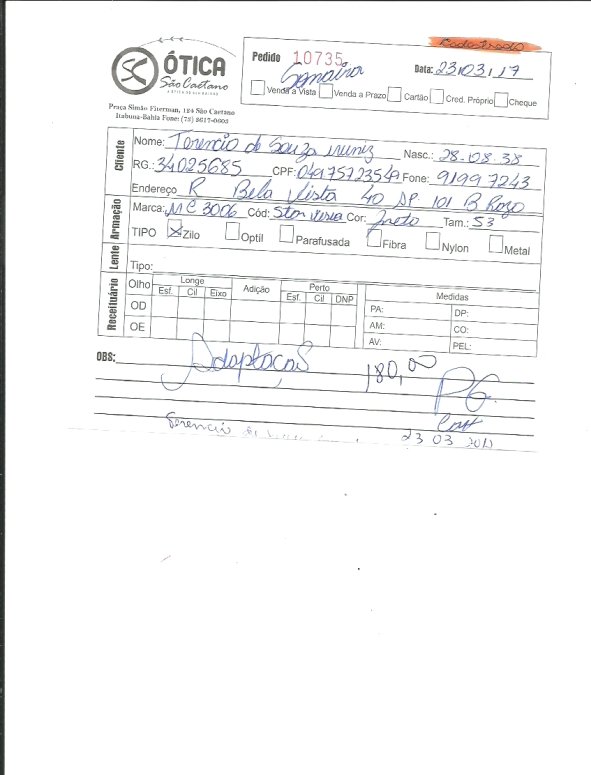 Cadastrado
SC ÓTICA
São Caetano
Pedido 10735 Data: 23/03/17
Venda a Vista Venda a Prazo Cartão Cred. Próprio Cheque
Praça Simão Fiterman, 184 São Caetano
Itabuna-Bahia Fone: (73) 8617-0603
Cliente
Nome: Terencio de Souza Nasc.: 28.08.38
RG.: 34025685 CPF: 04975723549 Fone: 9199 7243
Endereço R Bela Vista 40 AP. 101 B Roza
Armação
Marca: MC 3006 Cód: Cor: Preto Tam.: 53
TIPO Zilo Optil Parafusada Fibra Nylon Metal
Lente
Tipo:
Receituário
Olho Longe Adição Perto Medidas
Esf. Cil Eixo Esf. Cil DNP
OD PA: DP:
AM: CO:
OE AV: PEL:
OBS: Adaptação 180,00 PG.
Terencio de 23 03 2017